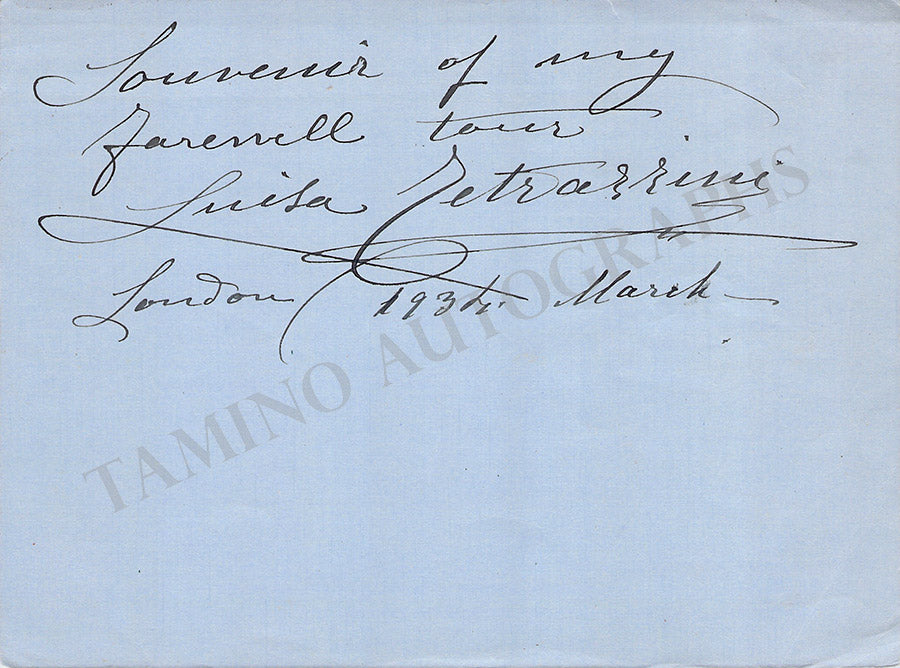 Souvenir of my
farewell tour
Luisa Tetrazzini
London 1934. March
TAMINO AUTOGRAPHS